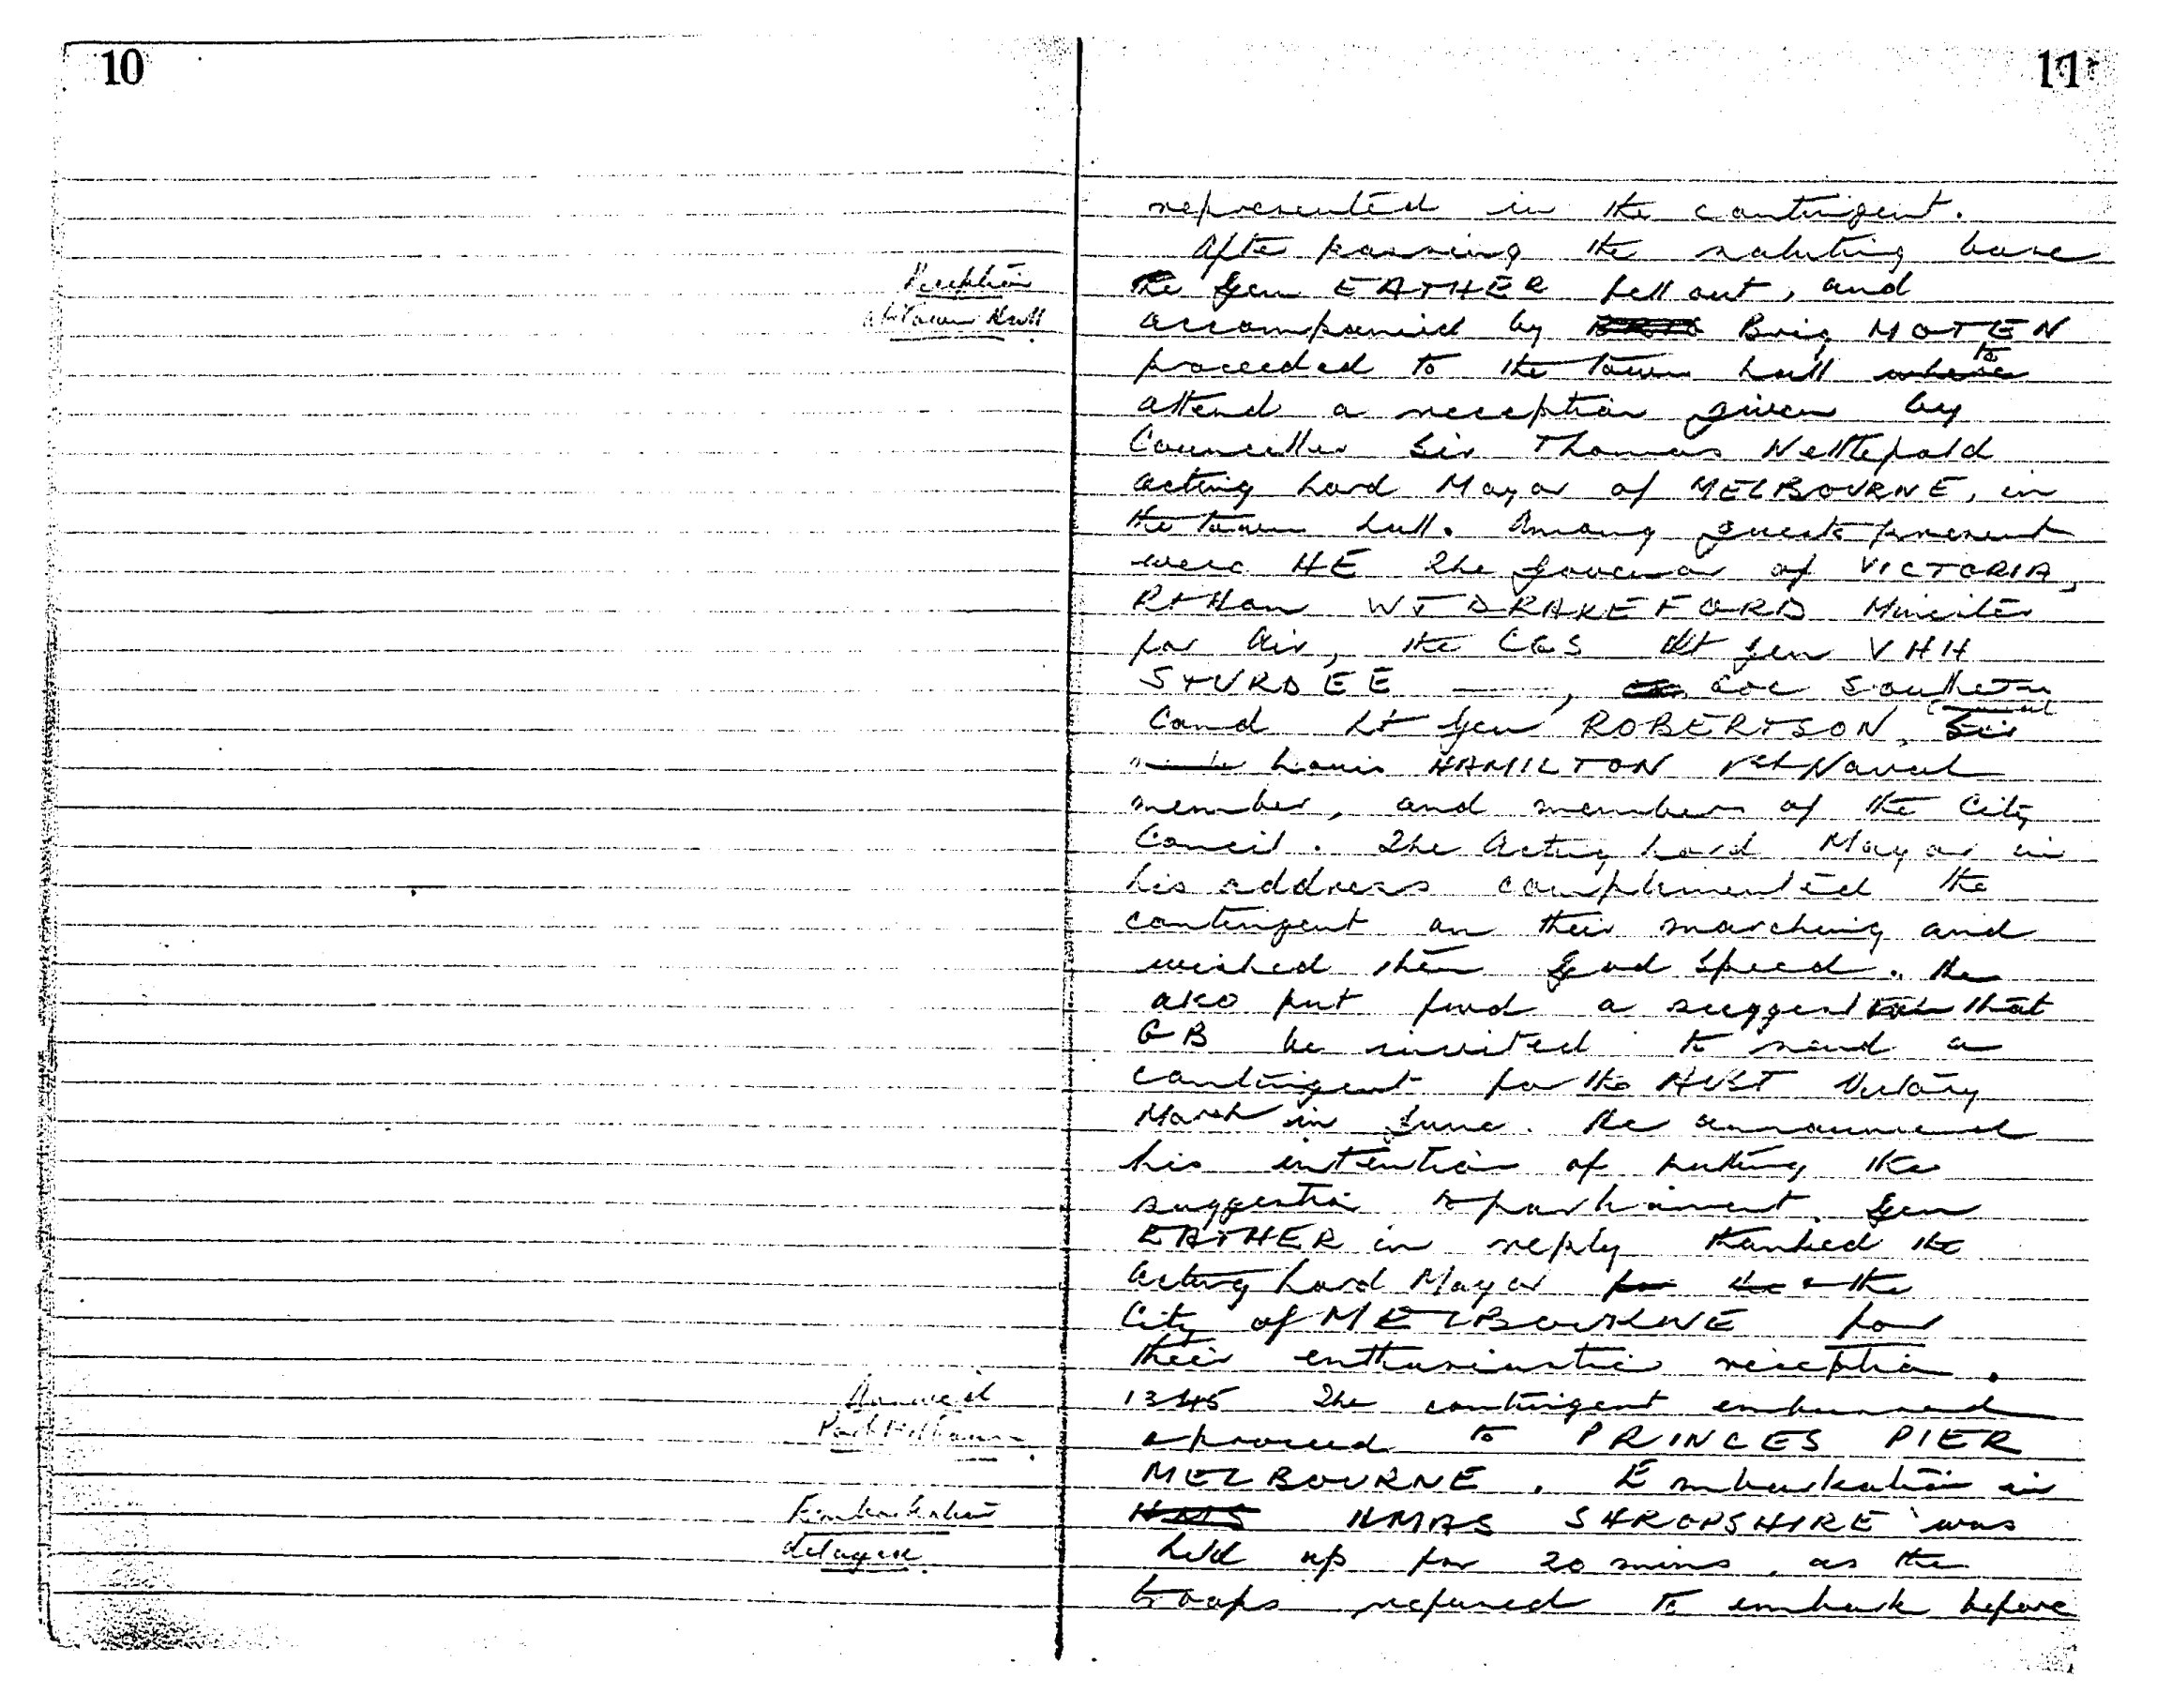 10
11
represented in the contingent.
After passing the saluting base
Reception
at Town Hall
Gen EATHER fell out, and
accompanied by Brig MOTEN
proceeded to the town hall to
attend a reception given by
Councillor Sir Thomas Nettlefold
acting Lord Mayor of MELBOURNE, in
the town hall. Among guests present
were HE The Governor of VICTORIA,
Rt Hon WT DRAKEFORD Minister
for Air, the CGS Lt Gen VHH
STURDEE ——, GOC Southern
Comd Lt Gen ROBERTSON,
Louis HAMILTON 1st Naval
member, and members of the City
Council. The Acting Lord Mayor in
his address complimented the
contingent on their marching and
wished them God Speed. He
also put fwd a suggestion that
GB be invited to send a
contingent for the AUST Victory
March in June. He announced
his intention of putting the
suggestion to parliament. Gen
EATHER in reply thanked the
Acting Lord Mayor & the
City of MELBOURNE for
their enthusiastic reception.
Arrive at
Port Melbourne
1345 The contingent embussed
& proceed to PRINCES PIER
MELBOURNE. Embarkation in
Embarkation
delayed.
HMS HMAS SHROPSHIRE was
held up for 20 mins, as the
troops refused to embark before